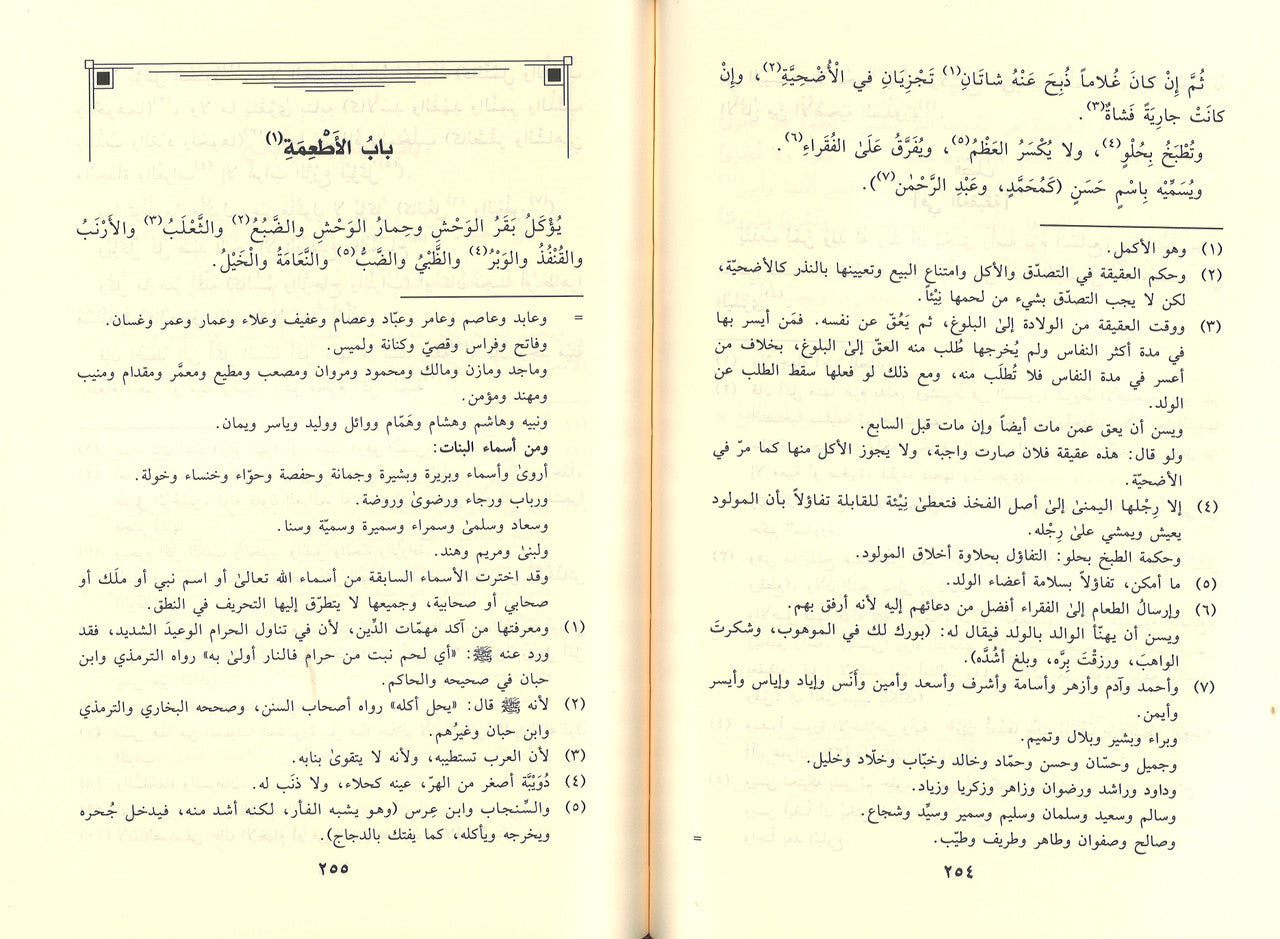 ثُمَّ إِنْ كانَ غُلاماً ذُبِحَ عَنْهُ شاتَانِ(١) تَجْزِيَانِ في الْأُضْحِيَّةِ(٢)، وإِنْ
كانَتْ جارِيَةً فَشاةٌ(٣).
وتُطْبَخُ بِحُلْوٍ(٤)، ولا يُكْسَرُ العَظْمُ(٥)، ويُفَرَّقُ عَلَىٰ الفُقَراءِ(٦).
ويُسَمِّيْهِ بِاسْمٍ حَسَنٍ (كَمُحَمَّدٍ، وعَبْدِ الرَّحْمٰنِ(٧)).
(١) وهو الأكمل.
(٢) وحكم العقيقة في التصدّق والأكل وامتناع البيع وتعيينها بالنذر كالأضحيّة،
لكن لا يجب التصدّق بشيء من لحمها نِيْئاً.
(٣) ووقت العقيقة من الولادة إلىٰ البلوغ، ثم يَعُقّ عن نفسه. فمَن أيسر بها
في مدة أكثر النفاس ولم يُخرجها طُلب منه العقّ إلىٰ البلوغ، بخلاف من
أعسر في مدة النفاس فلا تُطلَب منه، ومع ذلك لو فعلها سقط الطلب عن
الولد.
ويسن أن يعق عمن مات أيضاً وإن مات قبل السابع.
ولو قال: هذه عقيقة فلان صارت واجبة، ولا يجوز الأكل منها كما مرّ في
الأضحيّة.
(٤) إلا رِجْلها اليمنىٰ إلىٰ أصل الفخذ فتعطىٰ نِيْئة للقابلة تفاؤلاً بأن المولود
يعيش ويمشي علىٰ رِجْله.
وحكمة الطبخ بحلو: التفاؤل بحلاوة أخلاق المولود.
(٥) ما أمكن، تفاؤلاً بسلامة أعضاء الولد.
(٦) وإرسالُ الطعام إلىٰ الفقراء أفضل من دعائهم إليه لأنه أرفق بهم.
ويسن أن يهنّأ الوالد بالولد فيقال له: (بورك لك في الموهوب، وشكرتَ
الواهبَ، ورزقْتَ بِرَّه، وبلغ أشُدَّه).
(٧) وأحمد وآدم وأزهر وأسامة وأشرف وأسعد وأمين وأنَس وإياد وإياس وأيسر
وأيمن.
وبراء وبشير وبلال وتميم.
وجميل وحسّان وحسن وحمّاد وخالد وخبّاب وخلّاد وخليل.
وداود وراشد ورضوان وزاهر وزكريا وزياد.
وسالم وسعيد وسلمان وسليم وسمير وسيِّد وشجاع.
وصالح وصفوان وطاهر وطريف وطيّب. =
٢٥٤
بابُ الأَطْعِمَةِ(١)
يُؤْكَلُ بَقَرُ الوَحْشِ وحِمارُ الوَحْشِ والضَّبُعُ(٢) والثَّعْلَبُ(٣) والأَرْنَبُ
والقُنْفُذُ والوَبْرُ(٤) والظَّبْيُ والضَّبُّ(٥) والنَّعَامَةُ والْخَيْلُ.
= وعابد وعاصم وعامر وعبّاد وعصام وعفيف وعلاء وعمار وعمر وغسان.
وفاتح وفراس وقصيّ وكنانة ولميس.
وماجد ومازن ومالك ومحمود ومروان ومصعب ومطيع ومعمَّر ومقدام ومنيب
ومهند ومؤمن.
ونبيه وهاشم وهشام وهَمّام ووائل ووليد وياسر ويمان.
ومن أسماء البنات:
أروىٰ وأسماء وبريرة وبشيرة وجمانة وحفصة وحوّاء وخنساء وخولة.
ورباب ورجاء ورضوىٰ وروضة.
وسعاد وسلمىٰ وسمراء وسميرة وسميّة وسنا.
ولبنىٰ ومريم وهند.
وقد اخترت الأسماء السابقة من أسماء الله تعالىٰ أو اسم نبي أو ملَك أو
صحابي أو صحابية، وجميعها لا يتطرّق إليها التحريف في النطق.
(١) ومعرفتها من آكد مهمّات الدِّين، لأن في تناول الحرام الوعيدَ الشديد، فقد
ورد عنه ﷺ: «أي لحم نبت من حرام فالنار أولىٰ به» رواه الترمذي وابن
حبان في صحيحه والحاكم.
(٢) لأنه ﷺ قال: «يحل أكله» رواه أصحاب السنن، وصححه البخاري والترمذي
وابن حبان وغيرُهم.
(٣) لأن العرب تستطيبه، ولأنه لا يتقوىٰ بنابه.
(٤) دُوَيْبَّة أصغر من الهرّ، عينه كحلاء، ولا ذنَب له.
(٥) والسِّنجاب وابن عِرس (وهو يشبه الفأر، لكنه أشد منه، فيدخل جُحره
ويخرجه ويأكله، كما يفتك بالدجاج).
٢٥٥